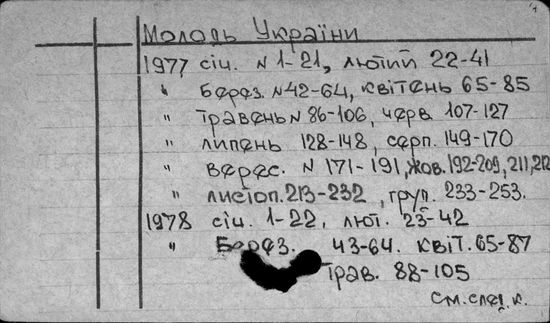 Молодь України
1977 січ. N 1-21, лютий 22-41
" Берез. N42-64, квітень 65-85
" травень N 86-106, черв. 107-127
" липень 128-148, серп. 149-170
" верес. N 171-191, жов. 192-209, 211, 212
" листоп. 213-232, груп. 233-253.
1978 січ. 1-22, лют. 23-42
" Берез. 43-64. квіт. 65-87
трав. 88-105
См. след. к.